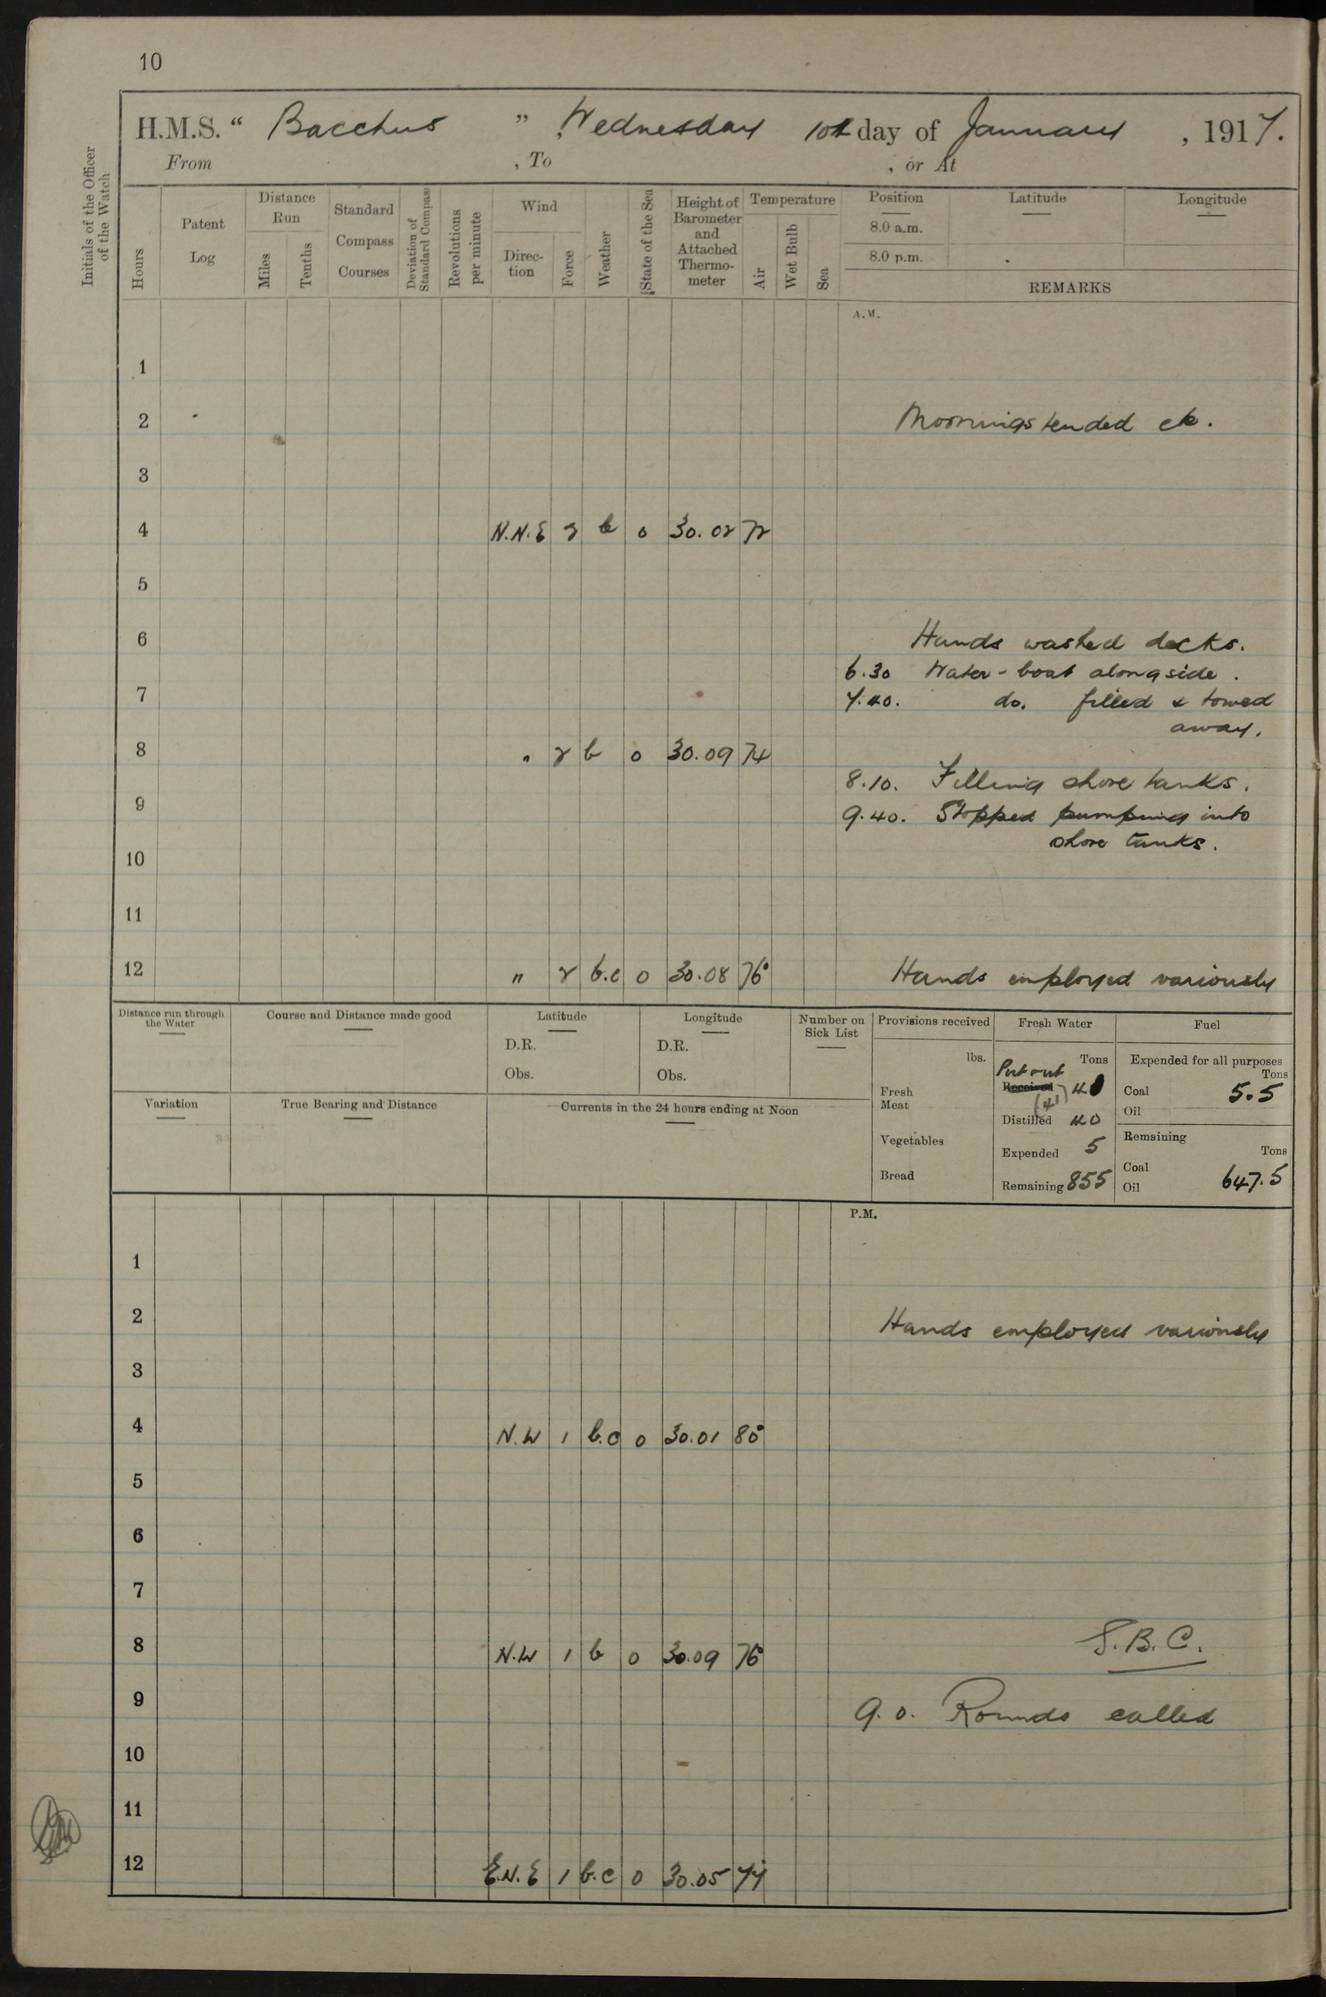 10
H.M.S. “ Bacchus ” Wednesday 10th day of January , 1917.
From , To , or At
Initials of the Officer of the Watch
Hours
Patent Log
Distance Run
Miles
Tenths
Standard Compass Courses
Deviation of Standard Compass
Revolutions per minute
Wind
Direction
Force
Weather
State of the Sea
Height of Barometer and Attached Thermometer
Temperature
Air
Wet Bulb
Sea
Position Latitude Longitude
8.0 a.m.
8.0 p.m.
REMARKS
A.M.
1
2 Moorings tended etc.
3
4 N.N.E 2 b 0 30.02 72
5
6 Hands washed decks.
6.30 Water-boat alongside.
7 7.40. do. filled & towed
away.
8 " 2 b 0 30.09 74
8.10. Filling shore tanks.
9 9.40. Stopped pumping into
shore tanks.
10
11
12 " 2 b.c 0 30.08 76° Hands employed variously
Distance run through the Water
Course and Distance made good
Latitude
D.R.
Obs.
Longitude
D.R.
Obs.
Number on Sick List
Variation
True Bearing and Distance
Currents in the 24 hours ending at Noon
Provisions received
lbs.
Fresh Meat
Vegetables
Bread
Fresh Water
Tons
Put out
Received
(41)
Distilled 40
Expended 5
Remaining 855
Fuel
Expended for all purposes
Tons
Coal 5.5
Oil
Remaining
Tons
Coal
Oil 647.5
P.M.
1
2 Hands employed variously
3
4 N.W 1 b.c 0 30.01 80°
5
6
7
8 N.W 1 b 0 30.09 76° S.B.C.
9 9.0. Rounds called
10
11
12 E.N.E 1 b.c 0 30.05 77°